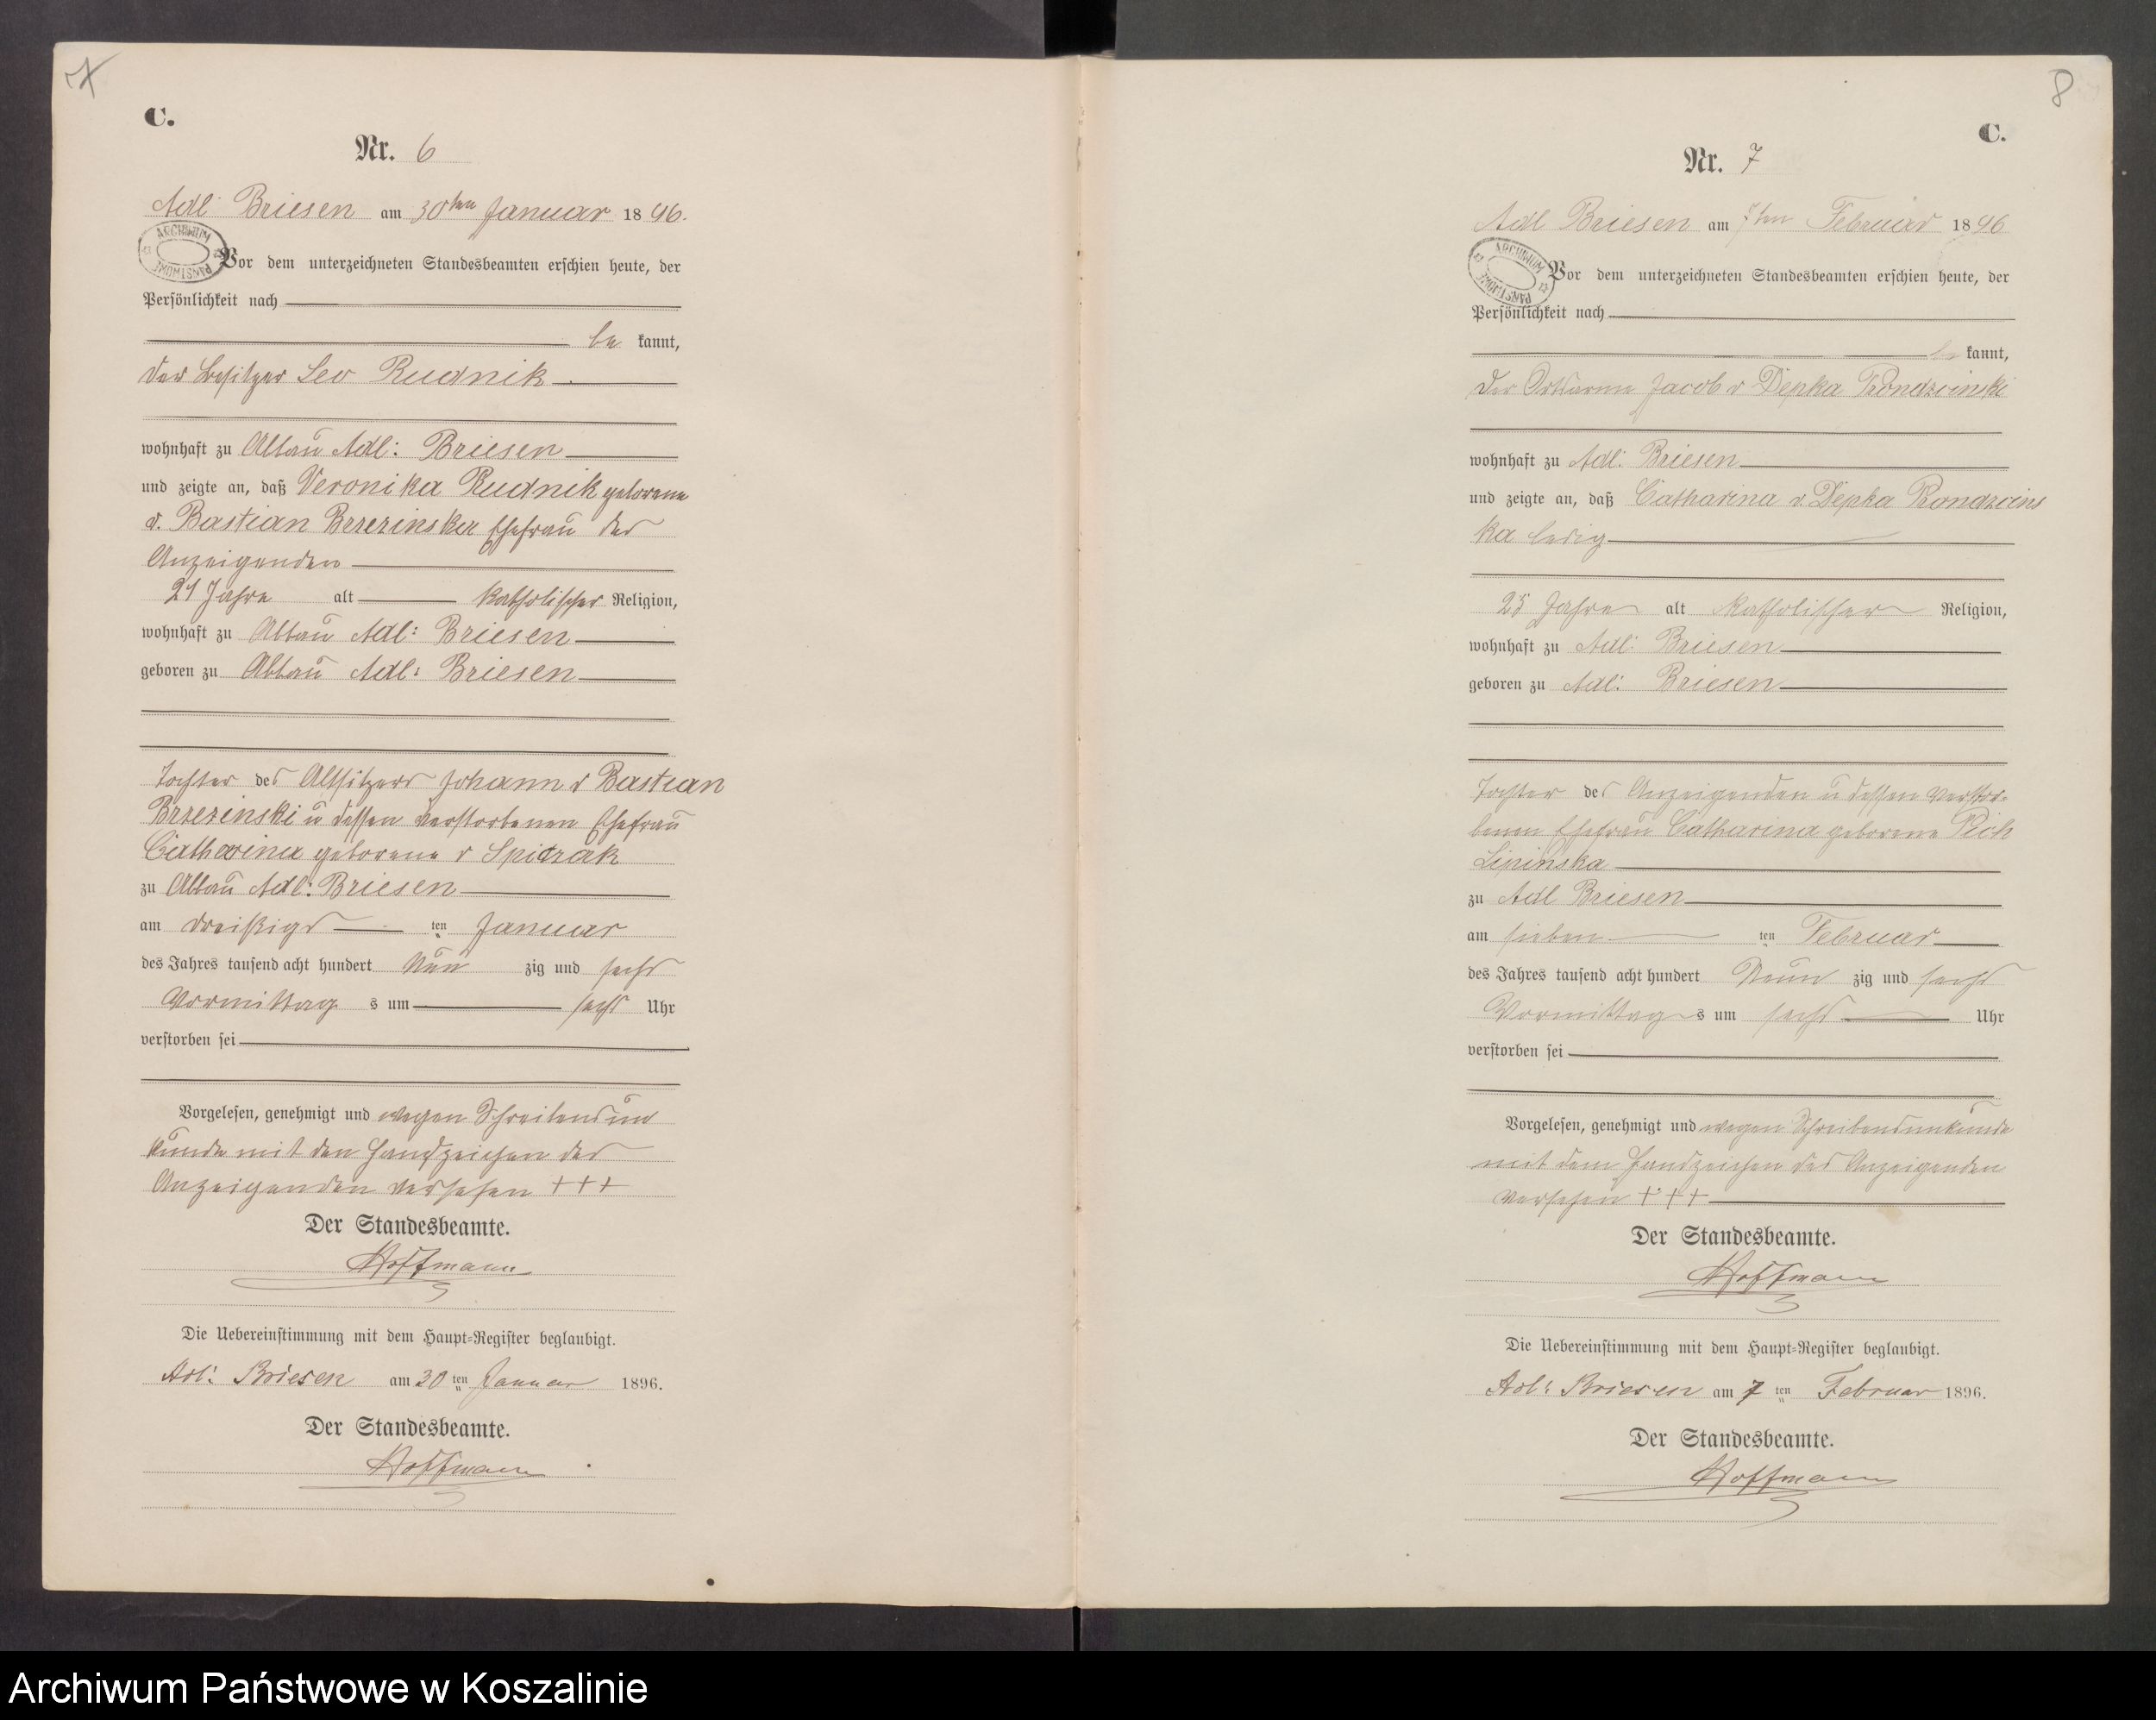 7
C.
Nr. 6
Adl. Briesen am 30ten Januar 1896.
ARCHIWUM PAŃSTWOWE
Vor dem unterzeichneten Standesbeamten erschien heute, der
Persönlichkeit nach
be kannt,
der Besitzer Leo Rudnik
wohnhaft zu Abbau Adl: Briesen
und zeigte an, daß Veronika Rudnik geborene
v. Bastian Brzezinska Ehefrau des
Anzeigenden
21 Jahre alt katholischer Religion,
wohnhaft zu Abbau Adl: Briesen
geboren zu Abbau Adl: Briesen
Tochter des Altsitzers Johann v Bastian
Brzezinski u dessen verstorbenen Ehefrau
Catharina geborene v Spiczak
zu Abbau Adl: Briesen
am dreißigs ten Januar
des Jahres tausend acht hundert Neun zig und sechs
Vormittag s um sechs Uhr
verstorben sei
Vorgelesen, genehmigt und wegen Schreibensun
kunde mit den Handzeichen des
Anzeigenden versehen +++
Der Standesbeamte.
Hoffmann
Die Uebereinstimmung mit dem Haupt-Register beglaubigt.
Adl: Briesen am 30 ten Januar 1896.
Der Standesbeamte.
Hoffmann
8
C.
Nr. 7
Adl Briesen am 7ten Februar 1896
ARCHIWUM PAŃSTWOWE
Vor dem unterzeichneten Standesbeamten erschien heute, der
Persönlichkeit nach
be kannt,
der Ortsarme Jacob v Depka Prondzinski
wohnhaft zu Adl: Briesen
und zeigte an, daß Catharina v. Depka Prondzins
ka ledig
25 Jahre alt katholischer Religion,
wohnhaft zu Adl: Briesen
geboren zu Adl: Briesen
Tochter des Anzeigenden u dessen verstor-
benen Ehefrau Catharina geborene Pich
Lipinska
zu Adl Briesen
am sieben ten Februar
des Jahres tausend acht hundert Neun zig und sechs
Vormittag s um sechs Uhr
verstorben sei
Vorgelesen, genehmigt und wegen Schreibensunkunde
mit dem Handzeichen des Anzeigenden
versehen +++
Der Standesbeamte.
Hoffmann
Die Uebereinstimmung mit dem Haupt-Register beglaubigt.
Adl: Briesen am 7 ten Februar 1896.
Der Standesbeamte.
Hoffmann
Archiwum Państwowe w Koszalinie